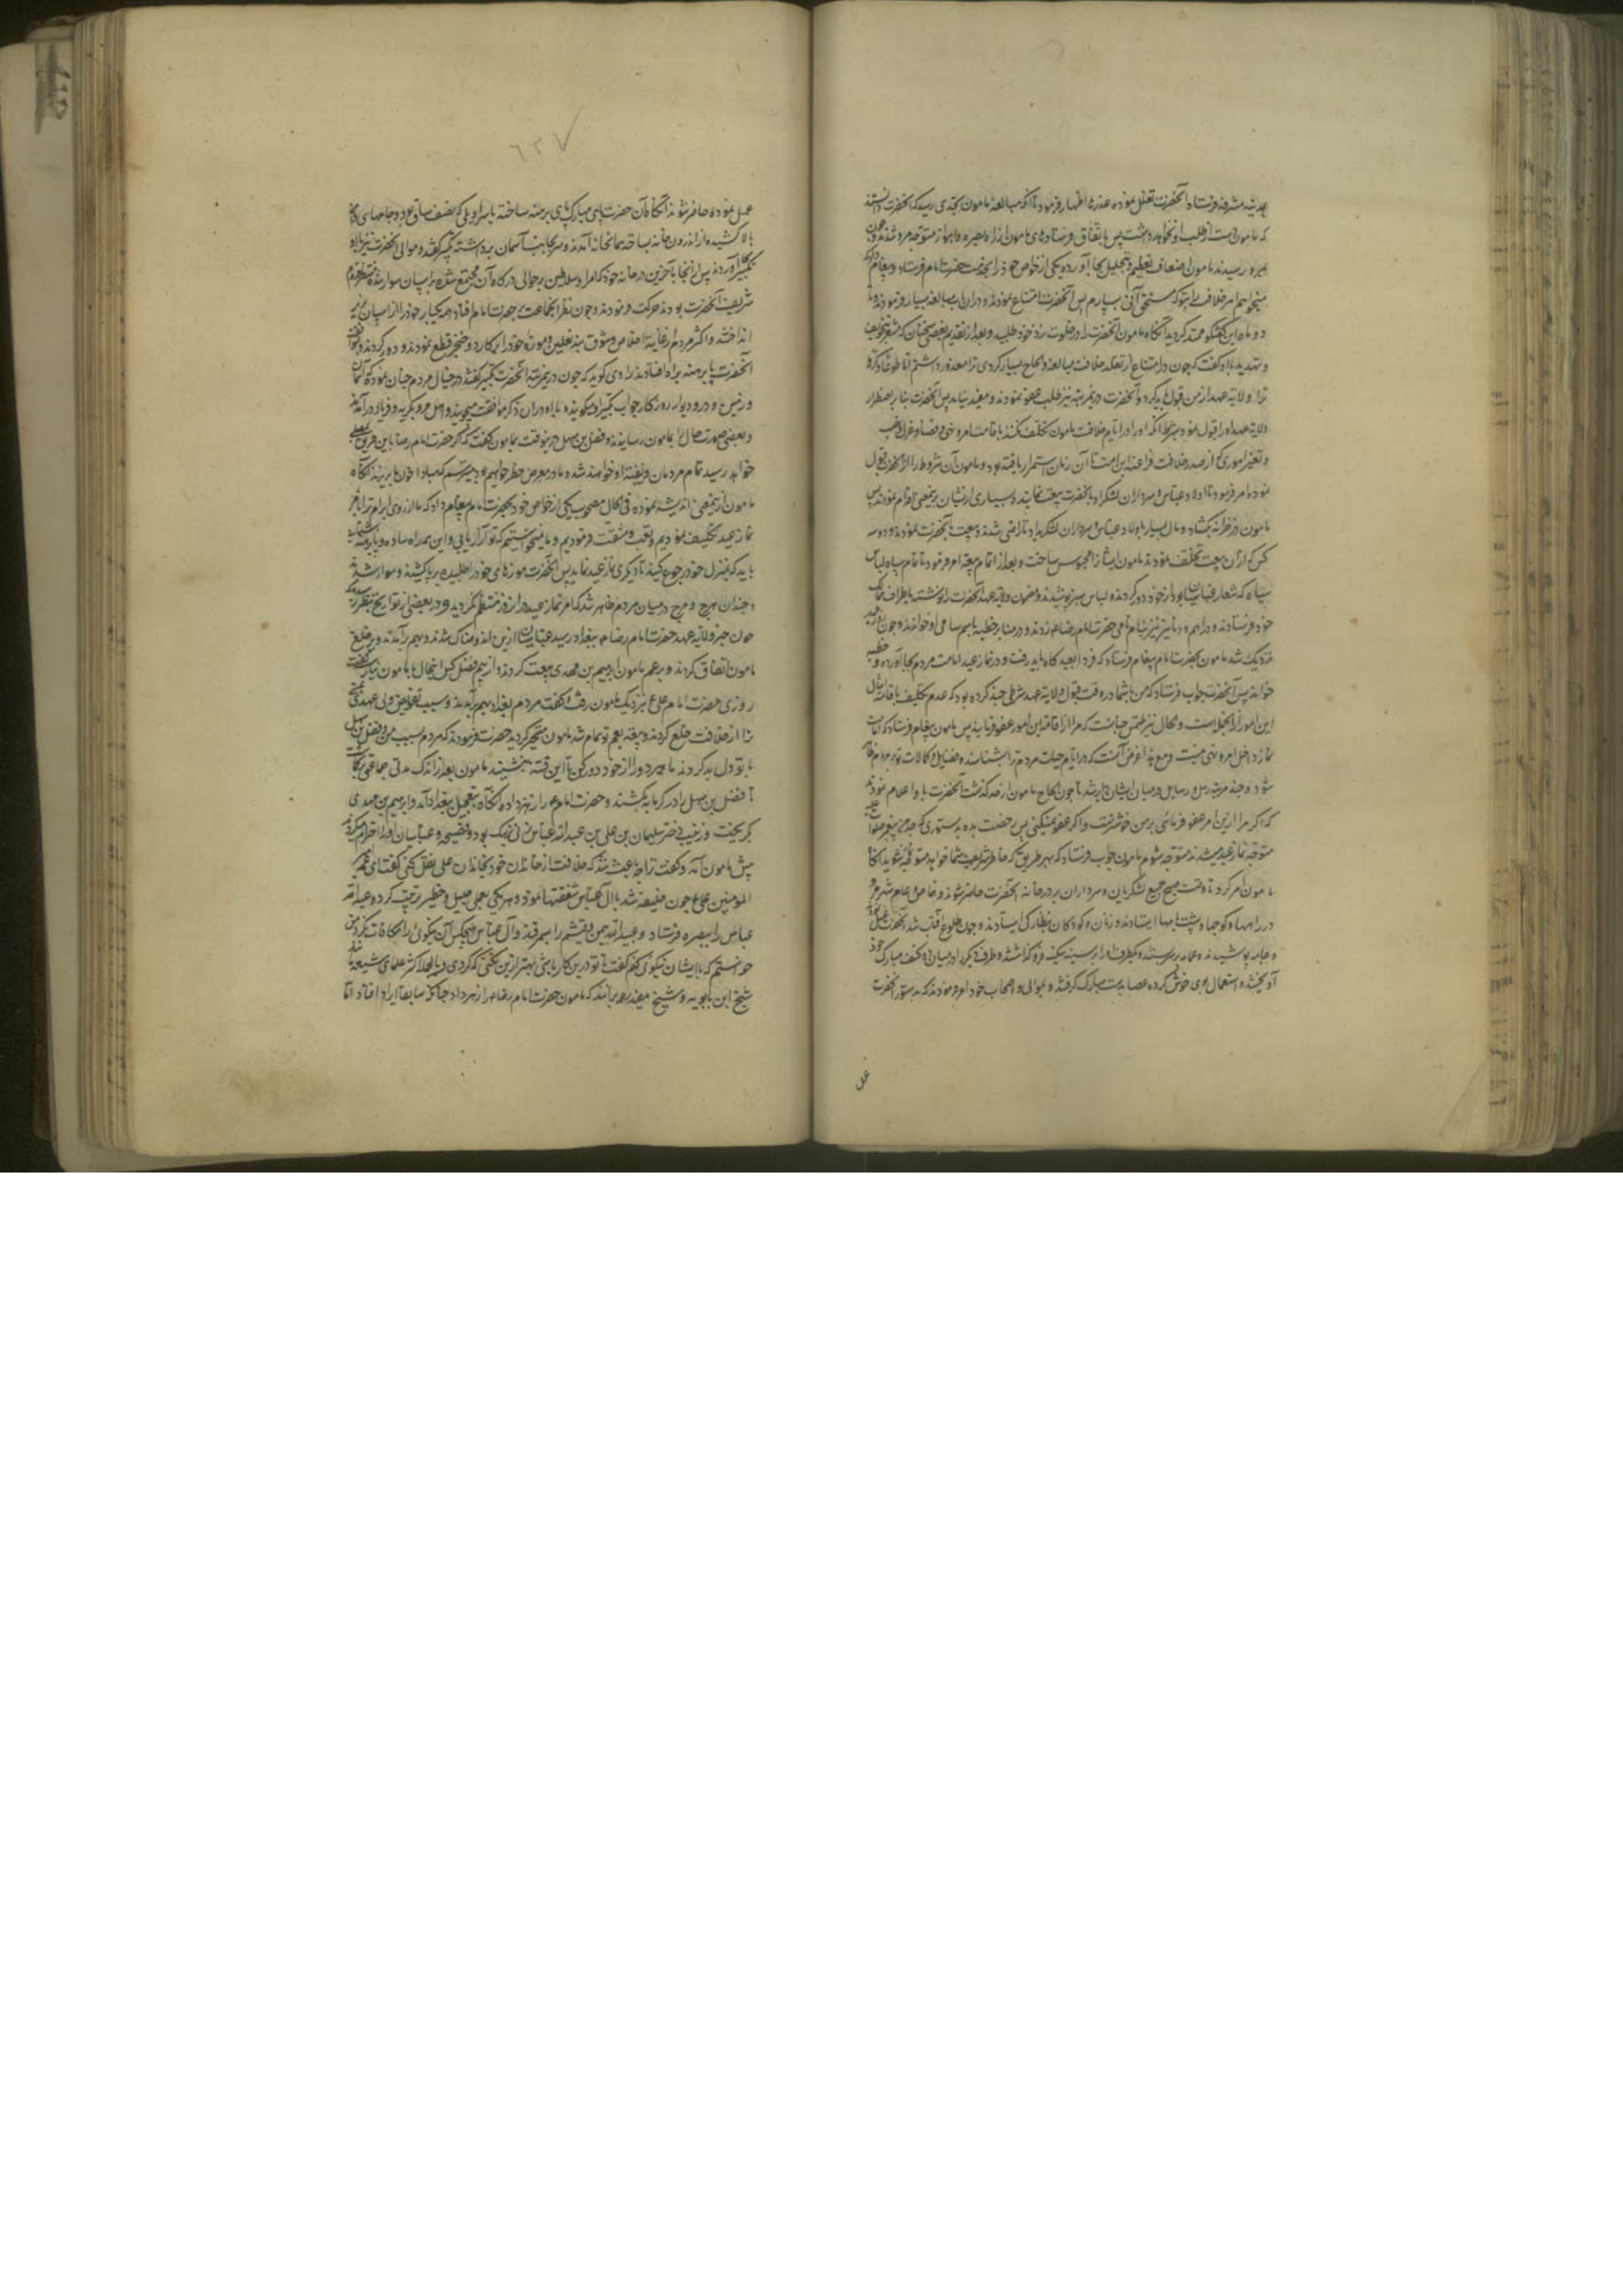 بمدینه مشرفه فرستاد و آنحضرت تعلل نموده عذرها اظهار فرمود تا آنکه مبالغه مامون بحدی رسید که آنحضرت دانستند
که مامون دست از طلب او نخواهد داشت پس باتفاق فرستادهای مامون از راه بصره و اهواز متوجه مرو شدند و چون
بمرو رسیدند مامون اصناف تعظیم و تبجیل بجا آورده یکی از خواص خود را بخدمت حضرت امام فرستاد و پیغام داد که
میخواهم امر خلافت را بتو که مستحق آنی بسپارم پس آنحضرت امتناع نمودند و در آن باب مبالغه بسیار فرمودند و تا
دو ماه این گفتگو ممتد گردید آنگاه مامون آنحضرت را در خلوت نزد خود طلبید و بعد از تقدیم بعضی سخنان که مشعر بتخویف
و تهدید با او گفت که چون در امتناع از تقلد خلافت مبالغه و الحاح بسیار کردی ترا معذور داشتم اما طوعا و کرها
ترا ولایة عهد از من قبول باید کرد و آنحضرت در مرتبه نیز طلب عفو نمودند و مفید نیامد پس آنحضرت بنابر اضطرار
ولایة عهد او را قبول نمود بشرط آنکه او را در ایام خلافت مامون تکلف نکنند باقامت امر و نهی و قضا و عزل و نصب
و تغیر اموری که از صدر خلافت فراعنه این امت تا آن زمان استمرار یافته بود و مامون آن شروط را از آنحضرت قبول
نموده امر فرمود تا اولاد عباس و سرداران لشکر او با آنحضرت بیعت نمایند و بسیاری از ایشان برین معنی اقدام نمودند پس
مامون در خزانه بگشاد و مال بسیار باولاد عباس و سرداران لشکر بداد تا راضی شدند و بیعت بآنحضرت نمودند و دو سه
کس که از آن بیعت تخلف نمودند مامون ایشانرا محبوس ساخت و بعد از اتمام بیعة امر فرمود تا تمام سپاه لباس
سیاه که شعار عباسیان بود از خود دور کردند و لباس سبز پوشیدند و مضمون ولایة عهد آنحضرت را نوشته باطراف ممالک
خود فرستادند و دراهم و دنانیر نیز بنام نامی حضرت امام رضا زدند و در منابر خطبه باسم سامی او خواندند و چون روز عید
نزدیک شد مامون بحضرت امام پیغام فرستاد که فردا بعید گاه باید رفت و در نماز عید امامت مردم بجا آورده و خطبه
خواند پس آنحضرت جواب فرستاد که من با شما در وقت قبول ولایة عهد شرطی چند کرده بودم که عدم تکلیف باقامة امثال
این امور از آنجمله است و الحال نیز ملتمس چنانست که مرا از اقامة این امور عفو فرمایند پس مامون پیغام فرستاد که امامت
نماز داخل امر و نهی نیست و مع هذا غرض آنست که در ایام حیات مردم ترا بشناسند و فضایل و کمالات تو بر مردم ظاهر
شود و چند مرتبه رسل و رسایل در میان ایشان دایر شد تا چون الحاح مامون از حد گذشت آنحضرت باو اعلام نمودند
که اگر مرا از این امر عفو فرمائی بر من خوشترست و اگر عفو نمیکنی پس رخصت بده بدستوری که جدم پیغمبر صلوات علیه
متوجه نماز عید میشدند متوجه شوم مامون جواب فرستاد که بهر طریق که خاطر شریف شما خواهد متوجه شوید آنگاه
مامون امر کرد تا وقت صبح جمیع لشکریان و سرداران بر در خانه آنحضرت حاضر شوند و خاص و عام شهر مرو
در راهها و کوچها و پشت بامها ایستادند و زنان و کودکان بنظارگی ایستادند و چون طلوع آفتاب شد آنحضرت غسل نموده
و جامه پوشیدند و عمامه بر سر بستند و یکطرف او را بر سینه بیکینه فرو گذاشتند و طرف دیگر را در میان دو کتف مبارک خود
آویختند و استعمال بوی خوش کرده عصا بدست مبارک گرفتند و بموالی و اصحاب خود امر فرمودند که بدستور آنحضرت
عمل
٦٣٧
عمل نموده حاضر شوند آنگاه آن حضرت پای مبارک پای برهنه ساخته با سراویلی که بنصف ساق بود و جامهای را
بالا کشیده از اندرون خانه بساحة خانه آمدند و سر بجانب آسمان برداشته تکبیر گفتند و موالی آنحضرت نیز با او
تکبیر آوردند پس از آنجا بآخرین در خانه خود که امرا و سلاطین بر حوالی درگاه آن مجتمع شده بر اسپان سوار شده منتظر قدوم
شریف آنحضرت بودند حرکت فرمودند و چون نظر آنجماعت بحضرت امام افتاد همه یکبار خود را از اسپان بزیر
انداختند و اکثر مردم از غایت اخلاص و شوق بند نعلین و موزه خود را بکارد و خنجر قطع نمودند و دور کردند و بموافقت
آنحضرت پا برهنه براه افتادند راوی گوید که چون در مرتبه آنحضرت تکبیر گفتند در خیال مردم چنان نمود که آسمان
و زمین و در و دیوار روزگار جواب تکبیر او میگویند و با او در آن ذکر موافقت میجویند و اهل مرو بگریه و فریاد در آمدند
و بعضی صورت حال را بمامون رسانیدند و فضل بن سهل در آن وقت بمامون گفت که اگر حضرت امام رضا باین طریق بمصلی
خواهد رسید تمام مردمان فریفته او خواهند شد و ما در معرض خطر خواهیم بود میترسم که مبادا خون ما بریزند آنگاه
مامون از ین معنی اندیشه نموده فی الحال مصحوب یکی از خواص خود بحضرت امام پیغام داد که ما از روی ابرام ترا بامر
نماز عید تکلیف نمودیم و تعب و مشقت فرمودیم و ما نمیخواستیم که تو آزار یابی و این همه راه ساده و پا برهنه
باید که بمنزل خود رجوع کنید تا دیگری نماز عید نماید پس آنحضرت موزهای خود را طلبیده بر پا کشیدند و سوار شدند
و چندان هرج و مرج در میان مردم ظاهر شد که امر نماز عید در آن روز منتظم نگردید و در بعضی از تواریخ بنظر رسیده که
چون خبر ولایة عهد حضرت امام رضا ببغداد رسید عباسیان از این اندوهناک شدند و بهم برآمدند و بر خلع
مامون اتفاق کردند و بر عم مامون ابراهیم بن مهدی بیعت کردند و از بیم فضل کس اینحال با مامون نیارست گفت
روزی حضرت امام ع بنزدیک مامون رفت و گفت مردم بغداد بهم برآمدند و سبب تفویض ولی عهدی بمن
ترا از خلافت خلع کردند و بیعة بعم تو تمام شد مامون متحیر گردید حضرت فرمودند که مردم بسبب من و فضل بن سهل
با تو دل بد کردند ما هر دو را از خود دور کن تا این فتنه بنشیند مامون بعد از اندک مدتی جماعتی برگماشت
تا فضل بن سهل را در گرمابه بکشتند و حضرت امام را زهر داده آنگاه بتعجیل ببغداد آمد و ابراهیم بن مهدی
بگریخت و زینب دختر سلیمان بن علی بن عبدالله عباس زنی نیک بود و فصیحه و عباسیان او را احترام میکردند
پیش مامون آمد و گفت ترا چه باعث شد که خلافت از خاندان خود بخاندان علی نقل کنی گفت ای عمه امیر
المومنین علی ع چون خلیفه شد با آل عباس شفقتها نمود و هر یکی بعملی جلیل و خطیر ترتیب کرد و عبدالله
عباس را ببصره فرستاد و عبیدالله بیمن و قثم را بسمرقند و آل عباس هیچکس آن نیکوئی او را مکافات نکردند من
خواستم که با ایشان نیکوئی کنم گفت تو درین کار باشی بهتر ازین نیکی که کردی و بالجمله اکثر علمای شیعه مانند
شیخ ابن بابویه و شیخ مفید بر آنند که مامون حضرت امام رضا را زهر داد چنانکه سابقا ایراد افتاد اما